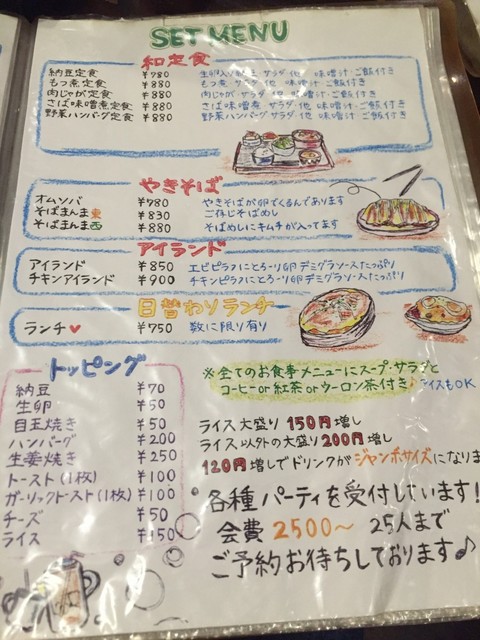 SET MENU
和定食
納豆定食 ¥780 生卵入り納豆 サラダ 他 味噌汁・ご飯付き
もつ煮定食 ¥880 もつ煮 サラダ 他 味噌汁・ご飯付き
肉じゃが定食 ¥880 肉じゃが サラダ 他 味噌汁・ご飯付き
さば味噌煮定食 ¥880 さば味噌煮 サラダ 他 味噌汁・ご飯付き
野菜ハンバーグ定食 ¥880 野菜ハンバーグ サラダ 他 味噌汁・ご飯付き
やきそば
オムソバ ¥780 やきそばが卵でくるんであります
そばまんま東 ¥830 ご存じそばめし
そばまんま西 ¥880 そばめしにキムチが入ってます
アイランド
アイランド ¥850 エビピラフにとろ〜り卵 デミグラソースたっぷり
チキンアイランド ¥900 チキンピラフにとろ〜り卵 デミグラソースたっぷり
日替わりランチ
ランチ♥ ¥750 数に限り有り
トッピング
納豆 ¥70
生卵 ¥50
目玉焼き ¥50
ハンバーグ ¥200
生姜焼き ¥250
トースト(1枚) ¥100
ガーリックトースト(1枚) ¥100
チーズ ¥50
ライス ¥150
※全てのお食事メニューにスープ・サラダと
コーヒーor紅茶orウーロン茶付き♪アイスもOK
ライス大盛り 150円増し
ライス以外の大盛り200円増し
120円増しでドリンクがジャンボサイズになりま
各種パーティを受付しています!
会費 2500〜 25人まで
ご予約お待ちしております♪